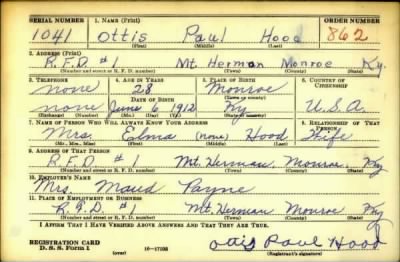 SERIAL NUMBER 1. NAME (Print) ORDER NUMBER
1041 Ottis Paul Hood 862
(First) (Middle) (Last)
2. ADDRESS (Print)
R.F.D. #1 Mt. Herman Monroe Ky.
(Number and street or R. F. D. number) (Town) (County) (State)
3. TELEPHONE 4. AGE IN YEARS 5. PLACE OF BIRTH 6. COUNTRY OF CITIZENSHIP
none 28 Monroe
DATE OF BIRTH (Town or county)
none June 6 1912 Ky U.S.A.
(Exchange) (Number) (Mo.) (Day) (Yr.) (State or country)
7. NAME OF PERSON WHO WILL ALWAYS KNOW YOUR ADDRESS 8. RELATIONSHIP OF THAT PERSON
Mrs. Elma (none) Hood Wife
(Mr., Mrs., Miss) (First) (Middle) (Last)
9. ADDRESS OF THAT PERSON
R.F.D. #1 Mt. Herman, Monroe, Ky
(Number and street or R. F. D. number) (Town) (County) (State)
10. EMPLOYER'S NAME
Mrs. Maud Payne
11. PLACE OF EMPLOYMENT OR BUSINESS
R.F.D. #1 Mt. Herman Monroe Ky
(Number and street or R. F. D. number) (Town) (County) (State)
I AFFIRM THAT I HAVE VERIFIED ABOVE ANSWERS AND THAT THEY ARE TRUE.
REGISTRATION CARD
D. S. S. Form 1 (over) 16—17105 Ottis Paul Hood
(Registrant's signature)